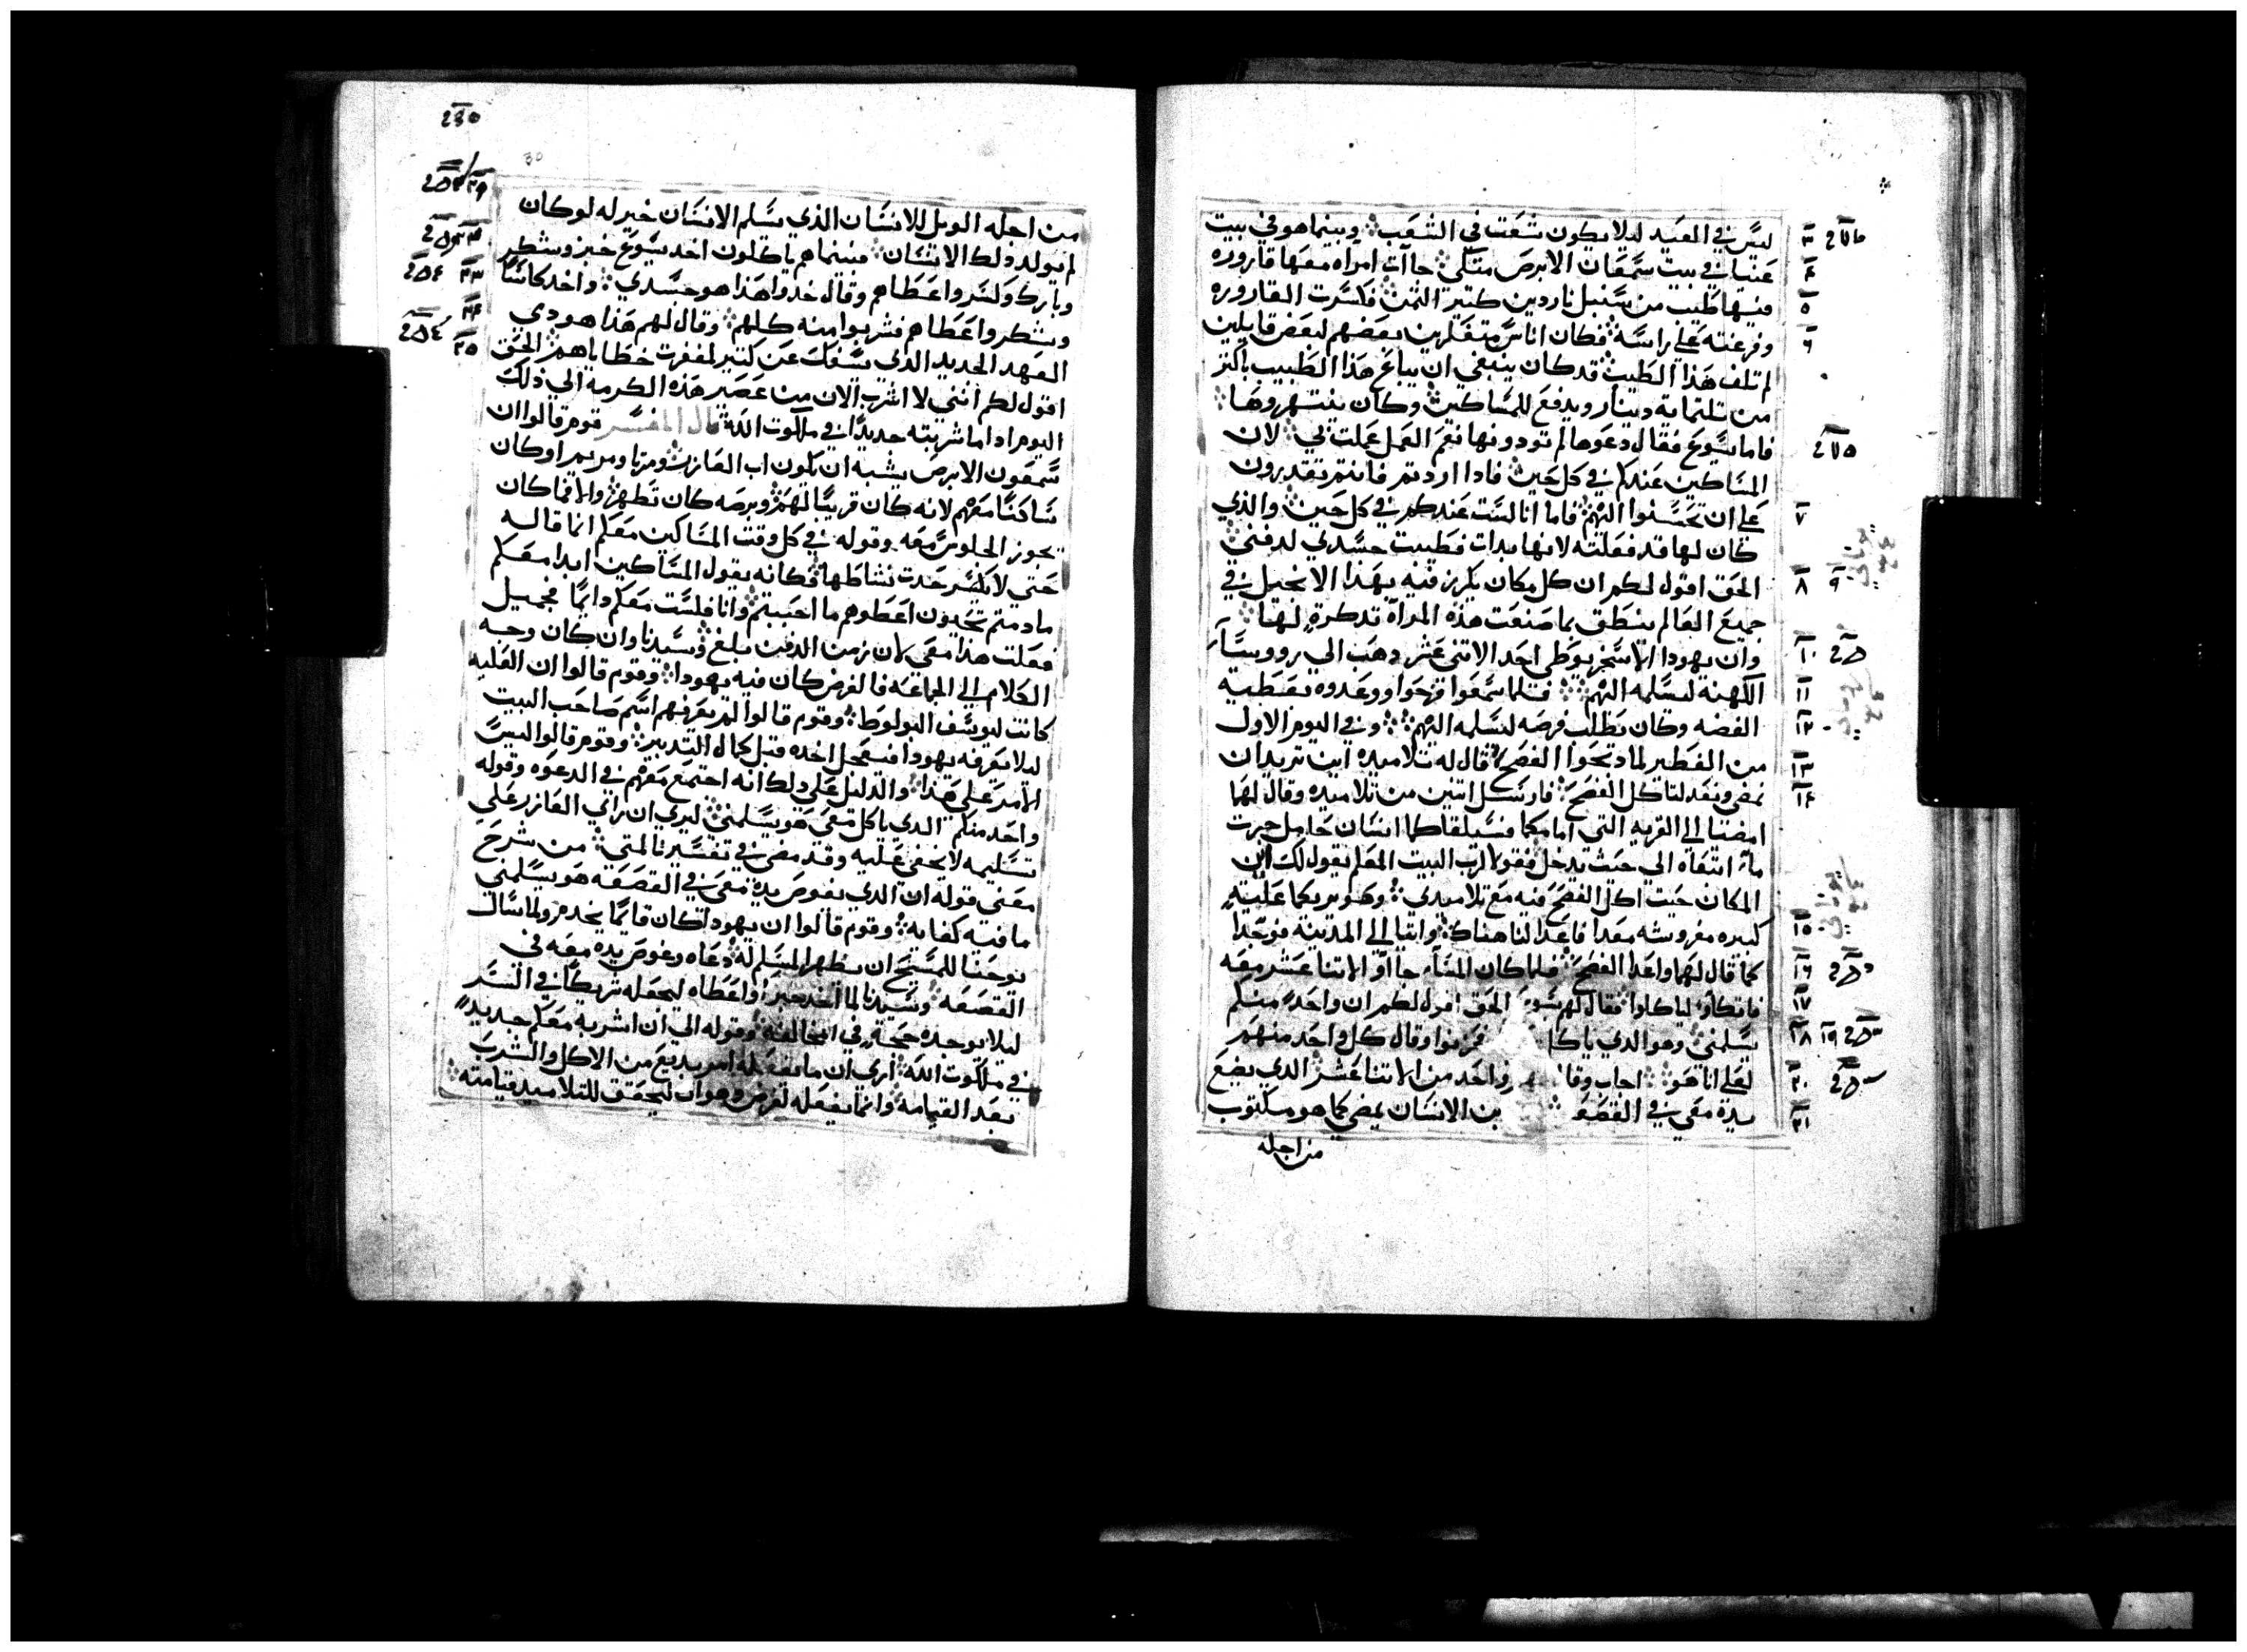 ليس في العيد ليلا يكون شغت في الشعب وبينما هو في بيت
عنيا في بيت سمعان الابرص متكي جآت امراه معها قاروره
فيها طيب من سنبل ناردين كتير الثمن فكسرت القاروره
وفرغته علي راسه فكان اناس متقملين بعضهم لبعض قايلين
لم تلف هذا الطيب قد كان ينبغي ان يباع هذا الطيب باكتر
من تلتماية دينار ويدفع للمساكين وكان ينتهروها
فاما يسوع فقال دعوها لم تودونها نعم العمل عملت بي لان
المساكين عندكم في كل حين فادا اردتم فانتم تقدرون
علي ان تحسنوا اليهم فاما انا لست عندكم في كل حين والذي
كان لها قد فعلته لانها بدات فطيبت جسدي لدفني
الحق اقول لكم ان كل مكان يكرز فيه بهذا الانجيل في
جميع العالم ينطق بما صنعت هذه المراه تدكرة لها
وان يهودا الاسخريوطي احد الاتني عشر دهب الي رووسآ
الكهنة ليسلمه اليهم فلما سمعوا فرحوا ووعدوه بعطية
الفضه وكان يطلب فرصه ليسلمه اليهم وفي اليوم الاول
من الفطير لما دبحوا الفصح قال له تلاميده اين تريد ان
نمضي ونعد لتاكل الفصح فارسل اتنين من تلاميده وقال لهما
امضيا الي القريه التي امامكما فسيلقاكما انسان حامل جرت
مآء اتبعاه الي حيت يدخل فقولا لرب البيت المعلم يقول لك اين
المكان حيت اكل الفصح فيه مع تلاميدي وهو يريكما علية
كبيره مفروشه معدا فاعدا لنا هناك واتيا الي المدينه فوجدا
كما قال لهما واعدا الفصح فلما كان المسآء جاآو الاتنا عشر معه
فاتكاو لياكلوا فقال لهم يسوع الحق اقول لكم ان واحد منكم
يسلمني وهو الدي ياكل فحزنوا وقال كل واحد منهم
لعلي انا هو اجاب وقال واحد من الاتنا عشر الدي يضع
يده معي في القصعه بن الانسان يمضي كما هو مكتوب
من اجله
من اجله الويل للانسان الذي يسلم الانسان خير له لو كان
لم يولد دلك الانسان فبينما هم ياكلون اخد يسوع خبز وشكر
وبارك وكسر واعطاهم وقال خدوا هذا هو جسدي واخد كاسًا
وشكر واعطاهم فشربوا منه كلهم وقال لهم هذا هو دمي
العهد الجديد الذي يسفك عن كتير لمغفرت خطاياهم الحق
اقول لكم انني لا اشرب الان من عصير هذه الكرمة الي ذلك
اليوم ادا ما شربته جديدًا في ملكوت الله قال المفسر قوم قالوا ان
سمعون الابرص يشبه ان يكون اب العازر ومرتا ومريم او كان
ساكنًا معهم لانه كان قريبًا لهم وبرصه كان تطهر والا فما كان
يجوز الجلوس معه وقوله في كل وقت المساكين معكم انما قاله
حتي لا يكسر حدت نشاطها فكانه يقول المساكين ابدا معكم
مادمتم تحيون اعطوهم ما احببتم وانا فلست معكم دايمًا فجميل
فعلت هذا معي لان زمن الدفن بلغ وسيدنا وان كان وجه
الكلام الي الجماعه فالغرض كان فيه يهودا وقوم قالوا ان العليه
كانت ليوسف البولوط وقوم قالوا لم يعرفهم اسم صاحب البيت
ليلا يعرفه يهودا فيعجل اخده قبل كمال التدبير وقوم قالوا ليس
الامر علي هذا والدليل علي دلك انه اجتمع معهم في الدعوه وقوله
واحد منكم الدي ياكل معي هو يسلمني ليري ان راي العازر علي
تسليمه لا يخفي عليه وقد مضي في تفسيرنا لمتي من شرح
معني قوله ان الدي يغوص يده معي في القصعه هو يسلمني
ما فيه كفايه وقوم قالوا ان يهودا كان قايمًا يخدم ولما سال
يوحنا للمسيح ان يظهر المسلم له دعاه وغوص يده معه في
القصعه وسيدنا لما اخد خبز واعطاه ليجعله شريكًا في السر
ليلا يوجده حجة في المخالفة وقوله الي ان اشربه معكم جديد
في ملكوت الله اري ان ما يفعله امر بديع من الاكل والشرب
بعد القيامه وانما يفعله لغرض وهو ان ليحقق للتلاميد قيامته